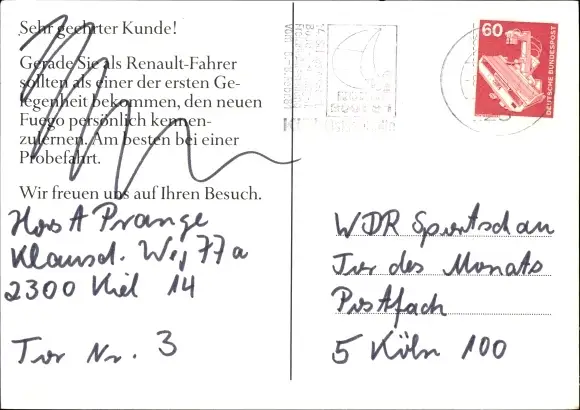 Sehr geehrter Kunde!
Gerade Sie als Renault-Fahrer
sollten als einer der ersten Ge-
legenheit bekommen, den neuen
Fuego persönlich kennen-
zulernen. Am besten bei einer
Probefahrt.
Wir freuen uns auf Ihren Besuch.
Horst Prange
Klausd. Weg 77a
2300 Kiel 14
Tor Nr. 3
60
DEUTSCHE BUNDESPOST
WDR Sportschau
Tor des Monats
Postfach
5 Köln 100